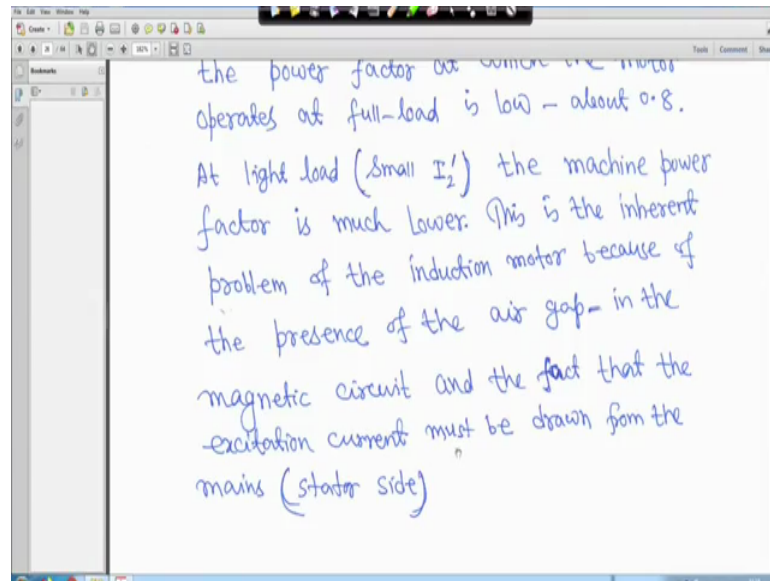 File Edit View Window Help
Create
/ 64
182%
Tools Comment
Bookmarks
the power factor at which the motor
operates at full-load is low - about 0.8.
At light load (small I₂') the machine power
factor is much lower. This is the inherent
problem of the induction motor because of
the presence of the air gap - in the
magnetic circuit and the fact that the
excitation current must be drawn from the
mains (stator side)